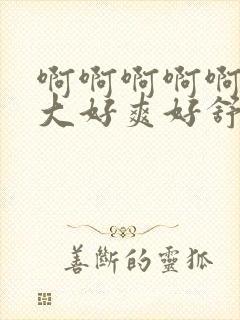 啊啊啊啊啊
大好爽好舒
善断的靈狐